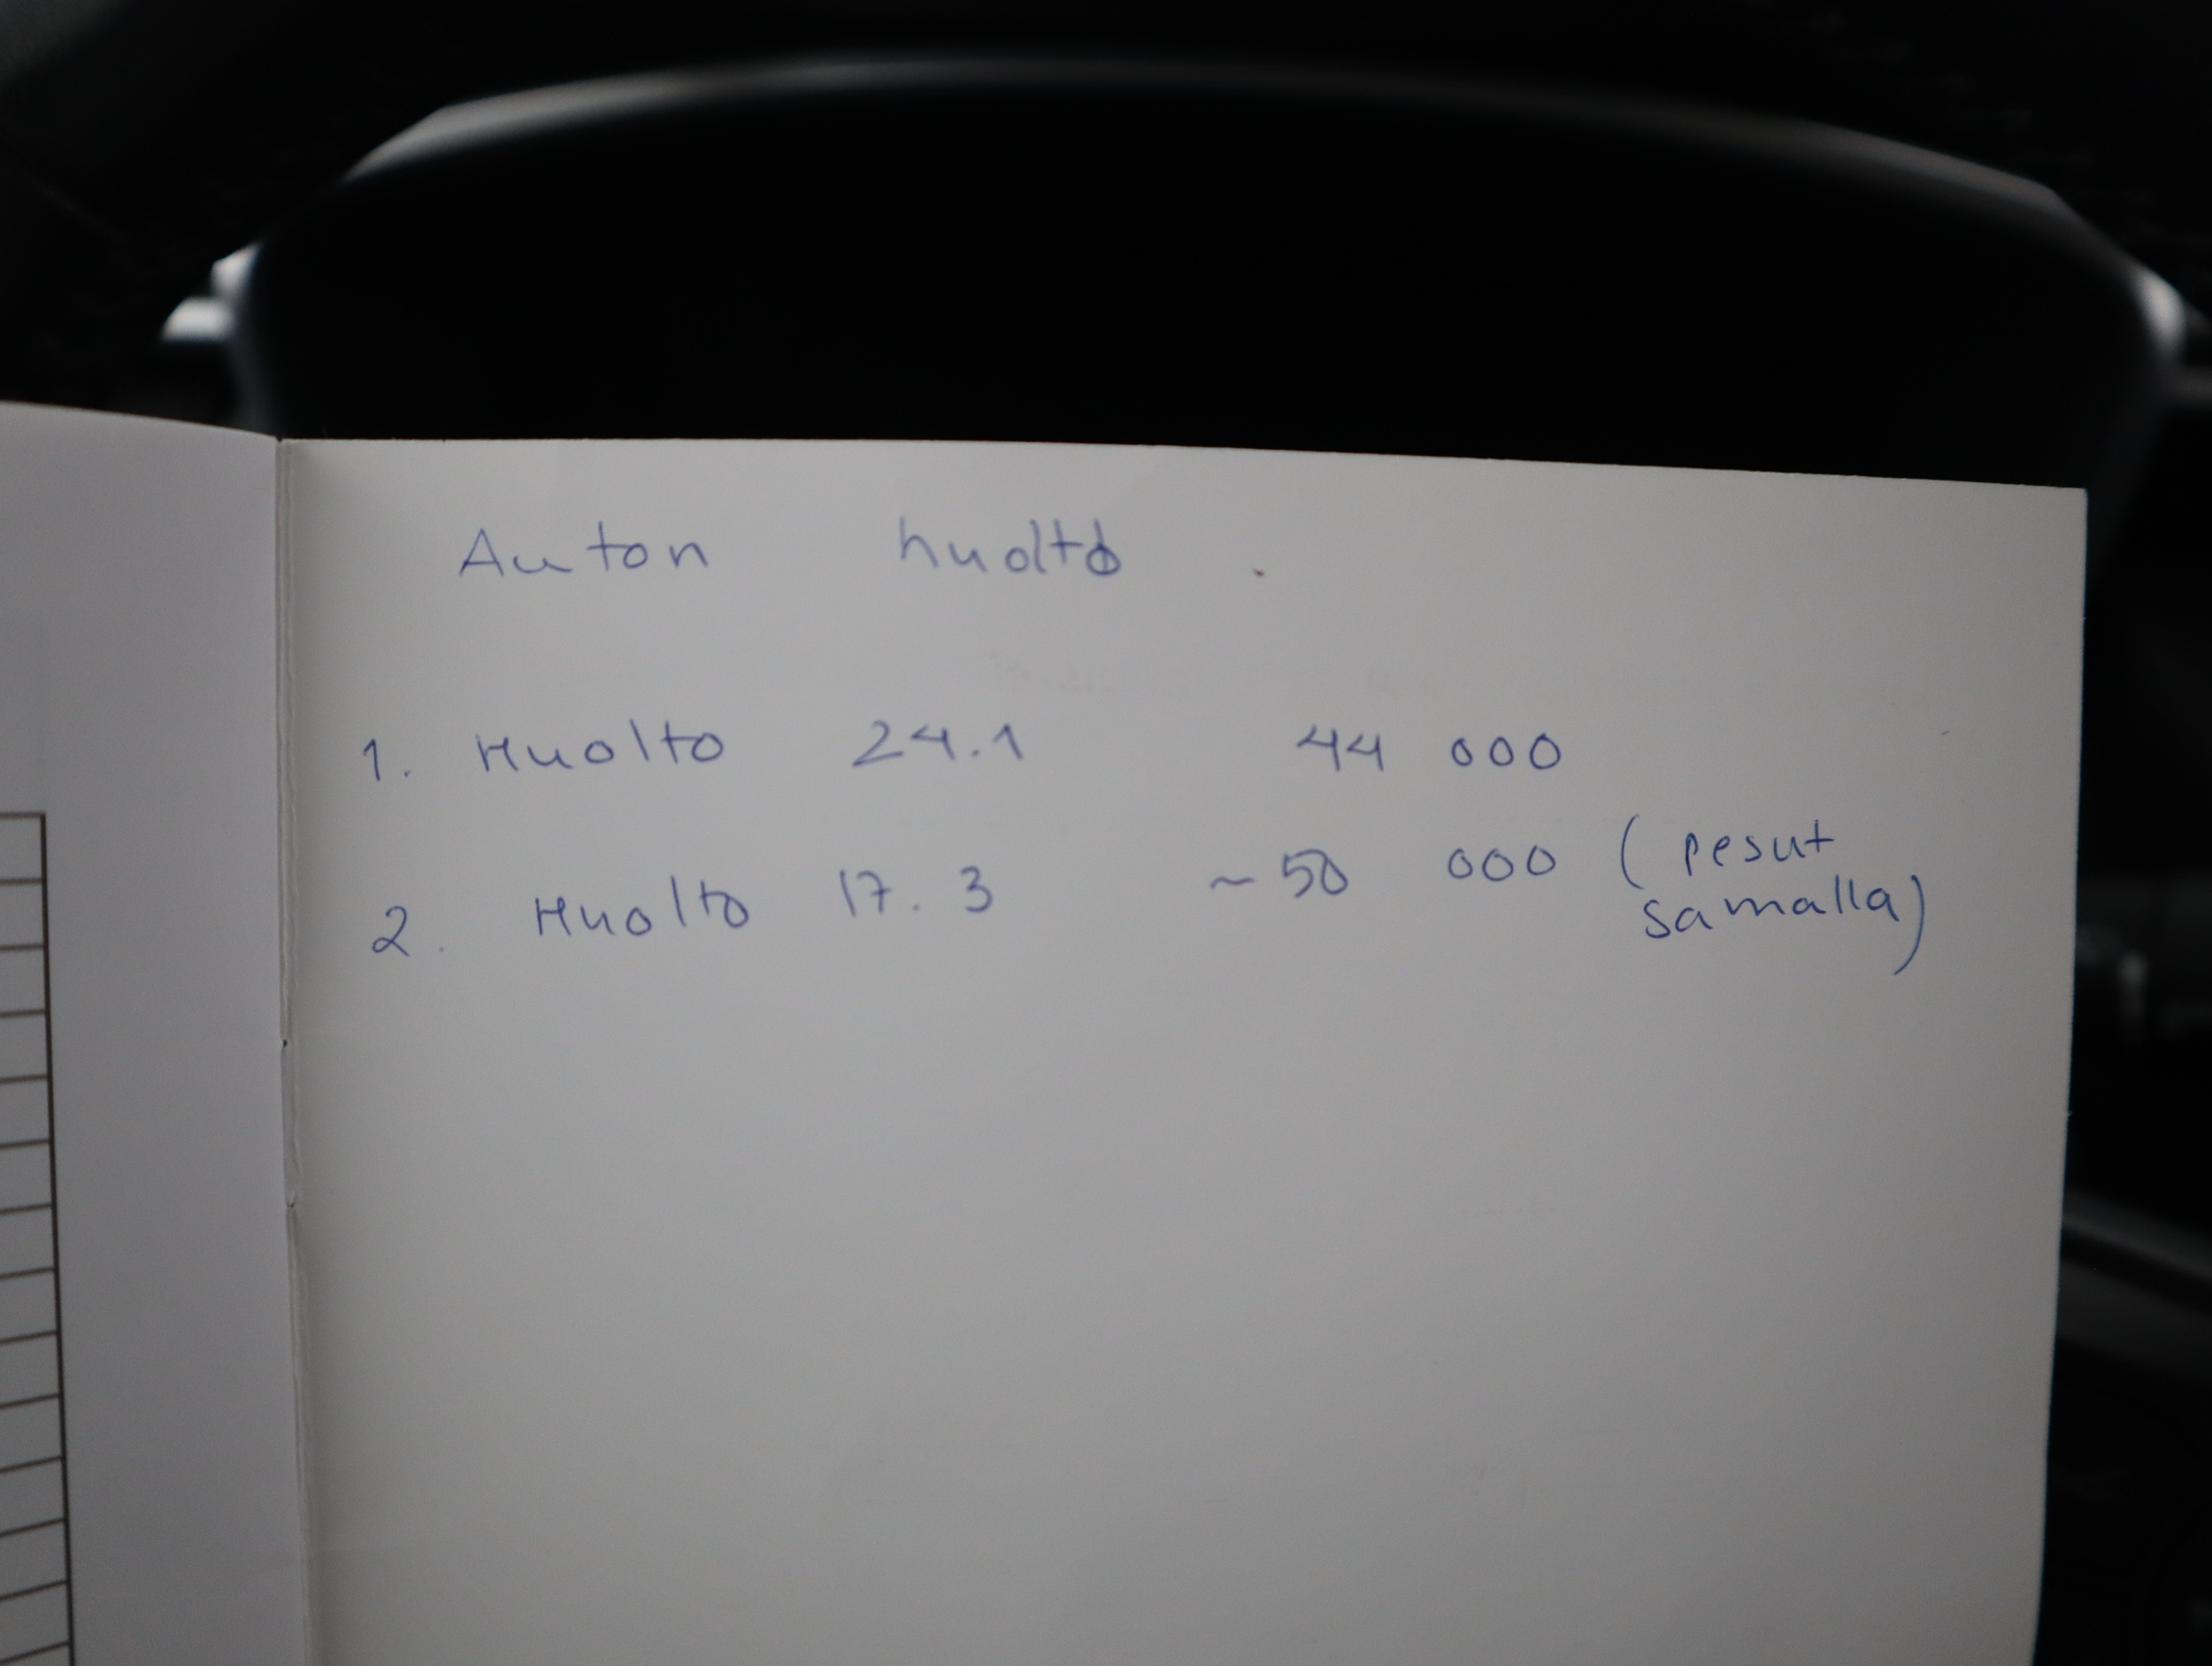 Auton huolto
1. Huolto 24.1 44 000
2. Huolto 17.3 ~50 000 (pesut
samalla)